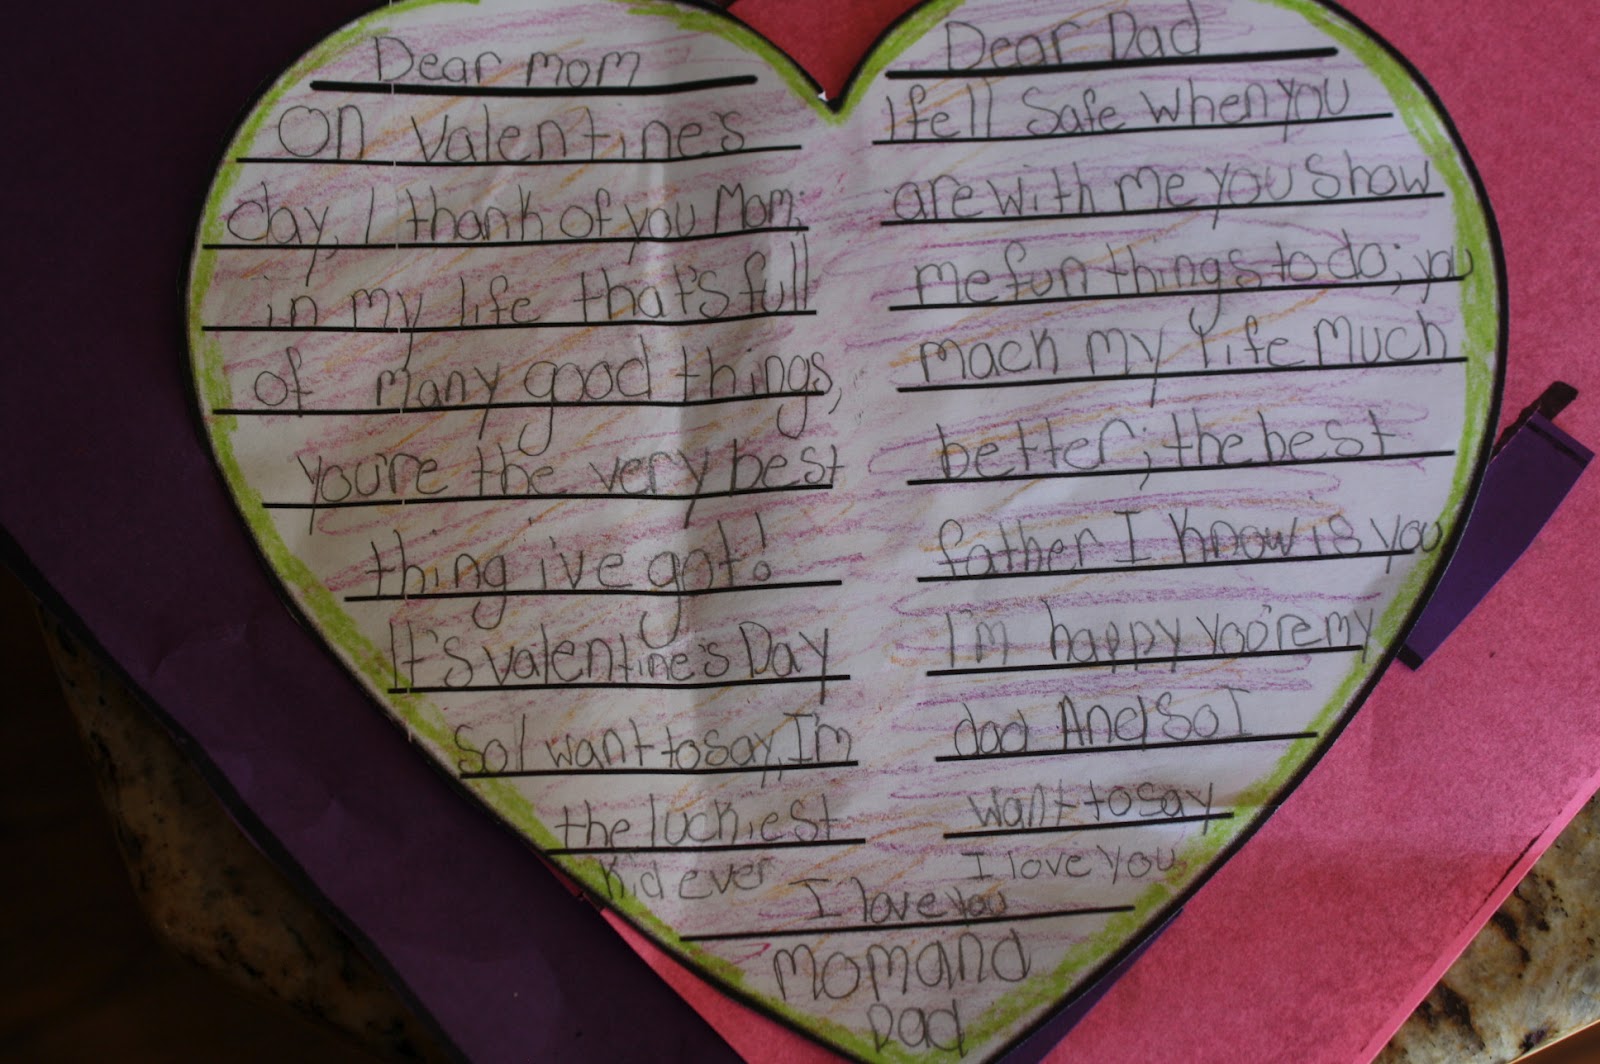 Dear mom
On Valentine's
day, I thank of you Mom;
in my life that's full
of many good things,
you're the very best
thing i've got!
It's Valentine's Day
So I want to say, I'm
the luckiest
Kid ever
Dear Dad
I fell Safe when you
are with me you Show
me fun things to do; you
mack my life Much
better; the best
father I know is you
I'm happy you're my
dad And So I
want to say
I love you
I love you
Mom and
Dad